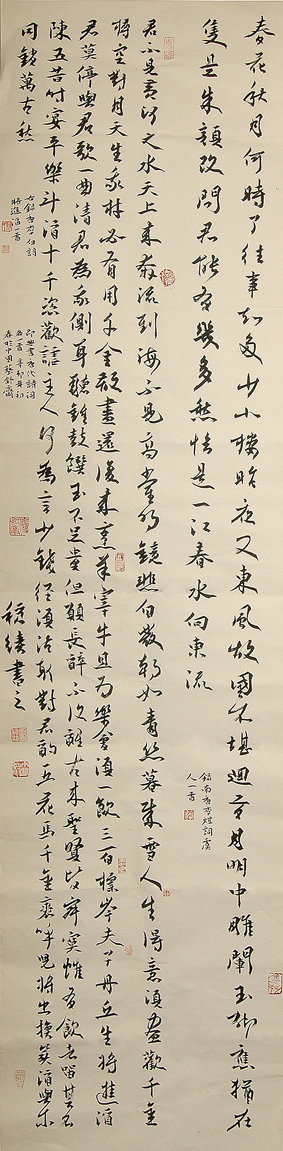 春花秋月何時了往事知多少小樓昨夜又東風故國不堪迴首月明中雕闌玉砌應猶在
隻是朱顏改問君能有幾多愁恰是一江春水向東流
錄南唐李煜詞虞
人一首
君不見黃河之水天上來奔流到海不見高堂明鏡悲白髮朝如青絲暮成雪人生得意須盡歡千金
將空對月天生我材必有用千金散盡還復來烹羊宰牛且為樂會須一飲三百杯岑夫子丹丘生將進酒
君莫停與君歌一曲請君為我側耳聽鐘鼓饌玉不足貴但願長醉不復醒古來聖賢皆寂寞惟有飲者留其名
陳王昔時宴平樂斗酒十千恣歡謔主人何為言少錢徑須沽取對君酌五花馬千金裘呼兒將出換美酒與爾
同銷萬古愁
右錄唐李白詩
將進酒一首
書唐代詩詞
各一首辛卯年初
春於中國藝舒齋
書之